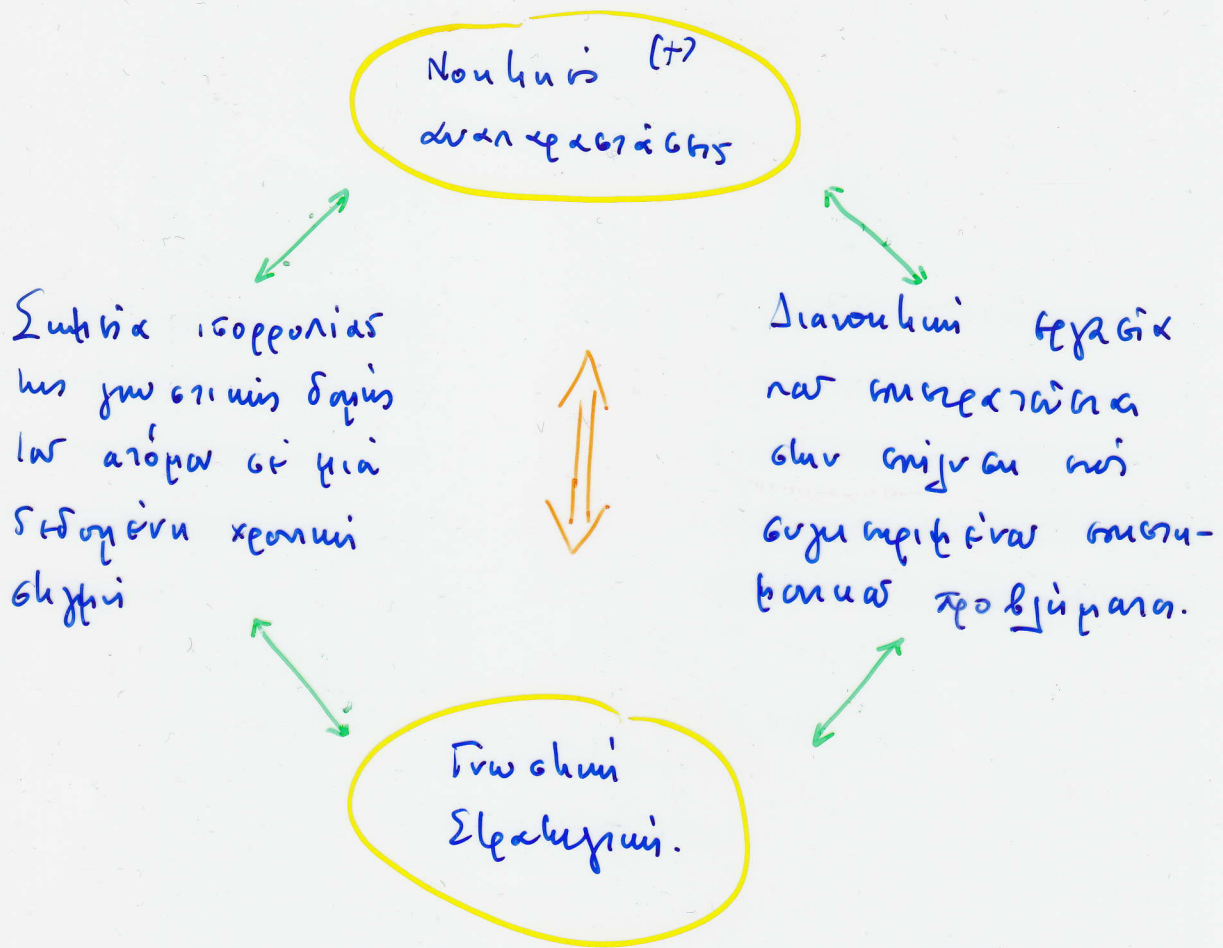 Νοητικές (+)
αναπαραστάσεις
Σημεία ισορροπίας
της γνωστικής δομής
του ατόμου σε μιά
δεδομένη χρονική
στιγμή
Διανοητική εργασία
που επιστρατεύεται
στην επίλυση ενός
συγκεκριμένου επιστη-
μονικού προβλήματος.
Γνωστική
Στρατηγική.